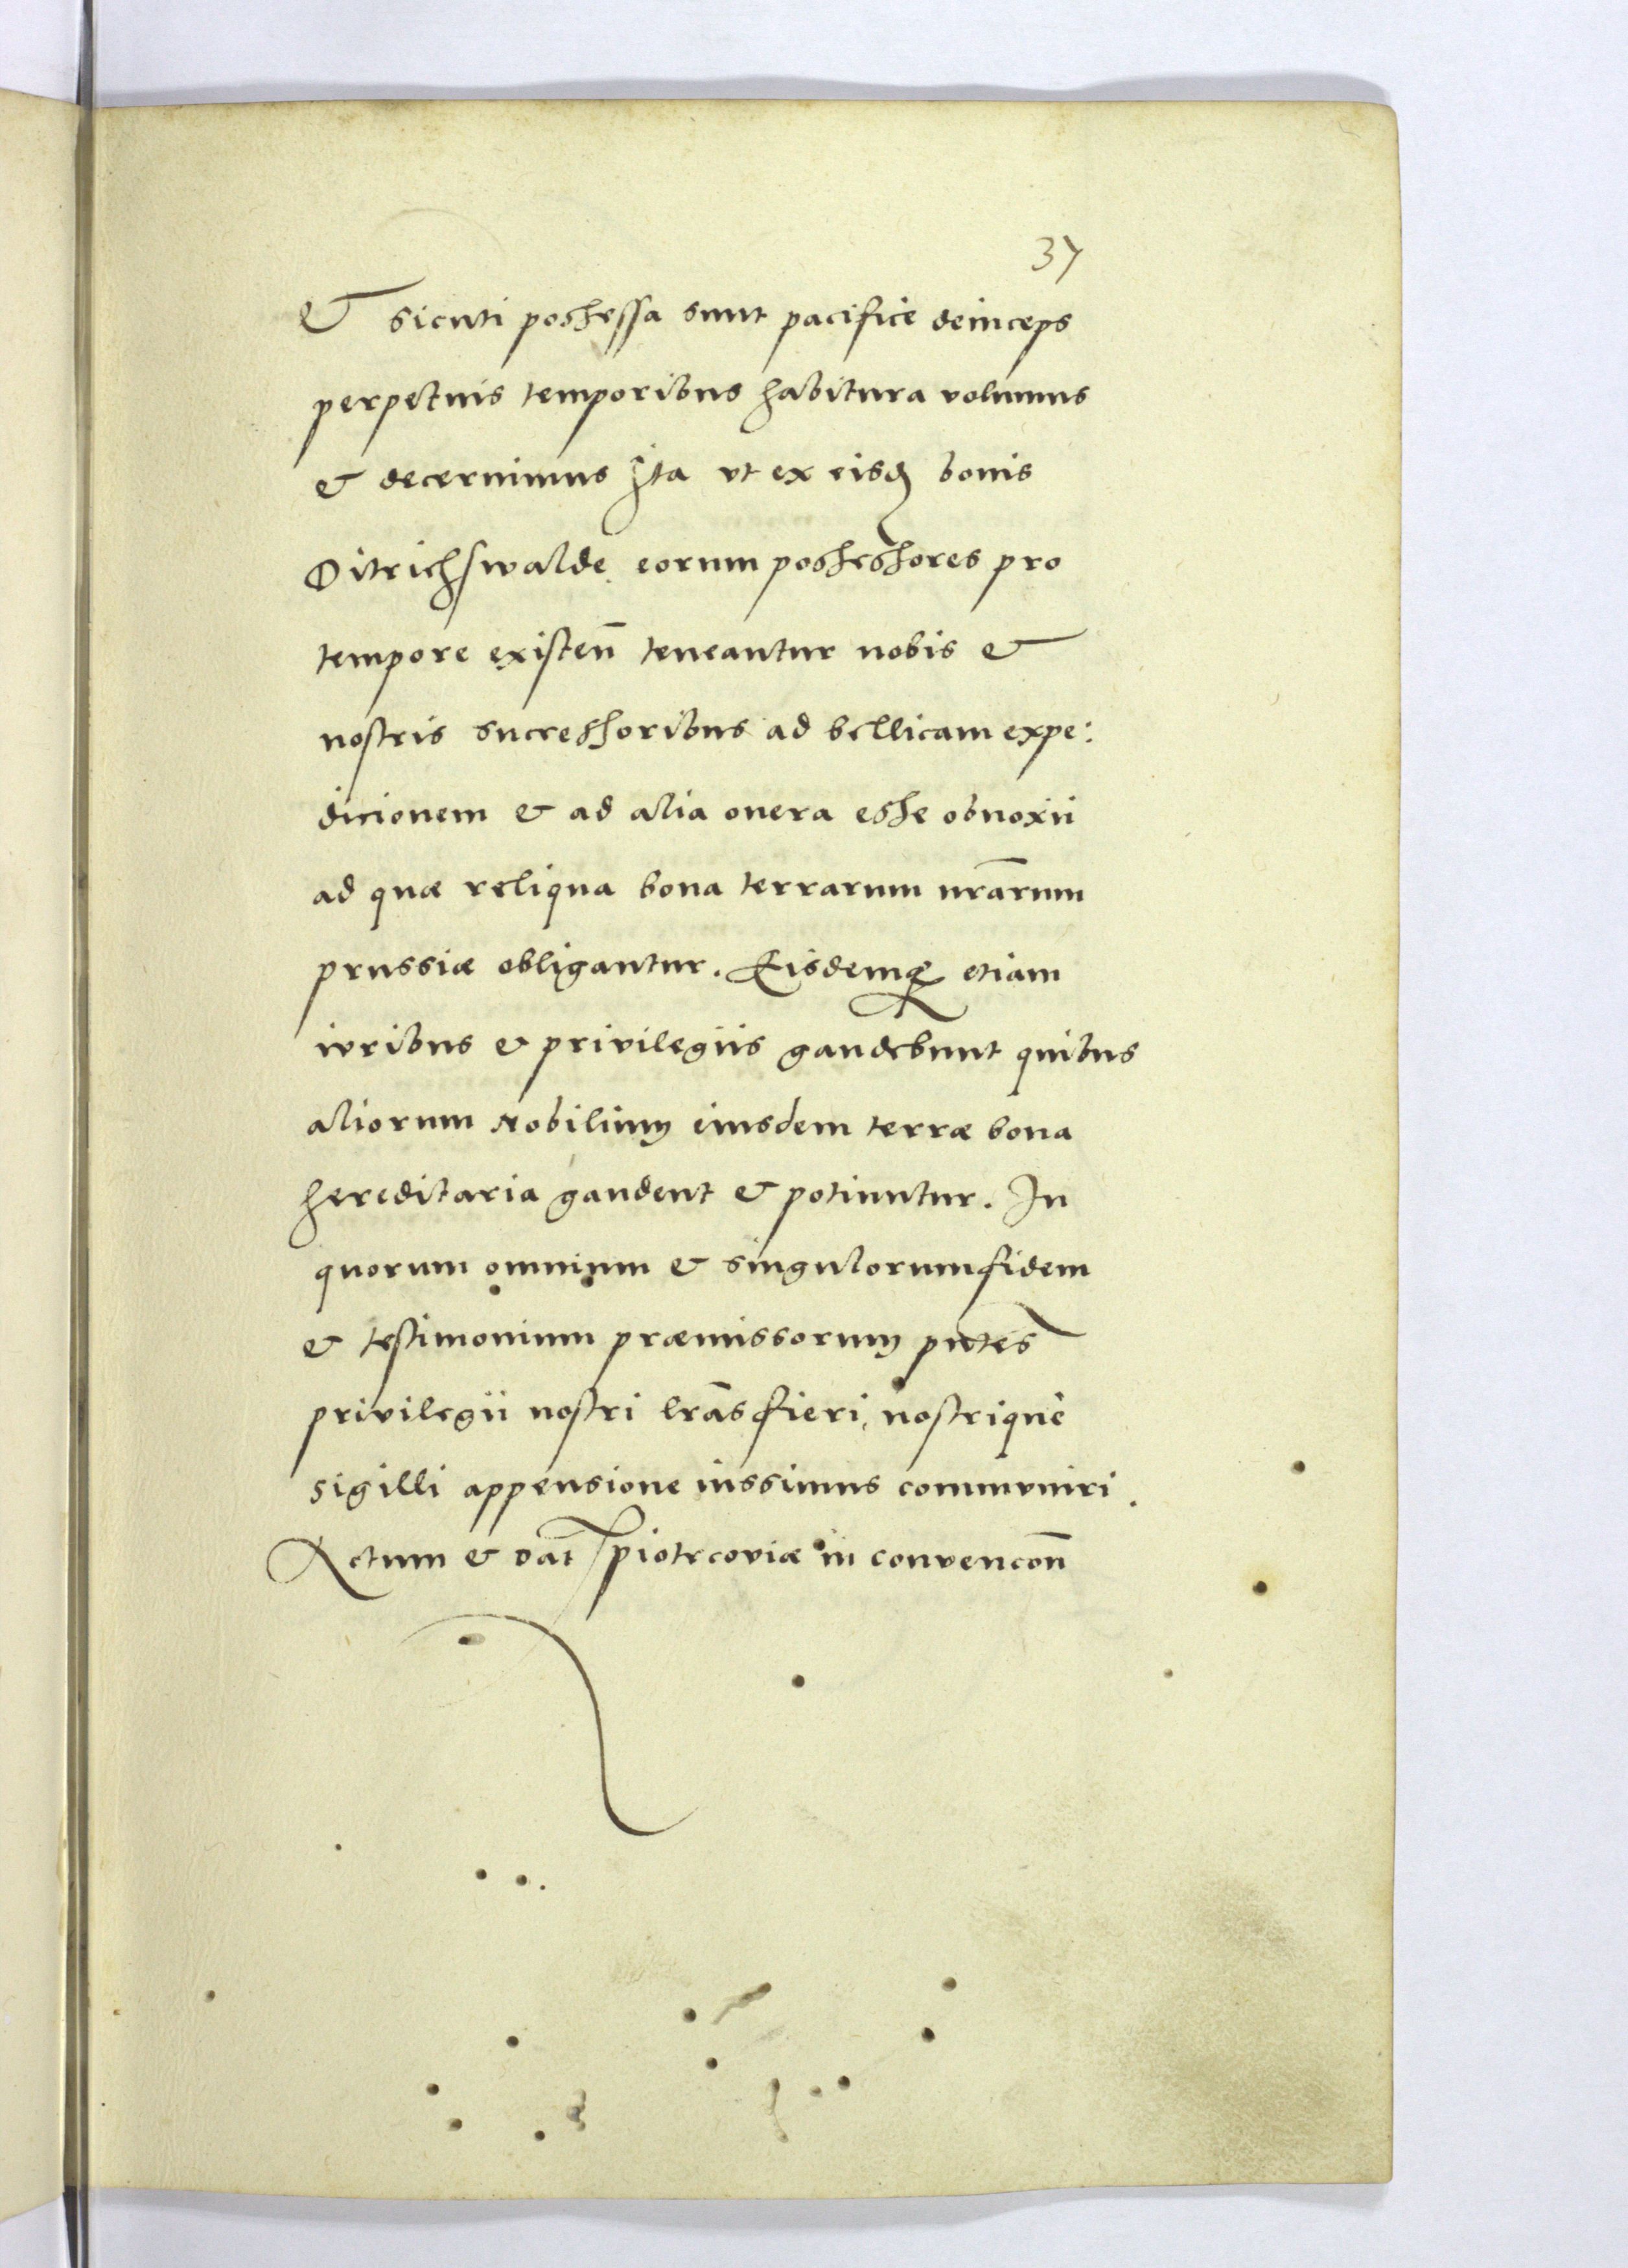 37
& sicuti possessa sunt pacifice deinceps
perpetuis temporibus habitura volumus
& decernimus Ita vt ex eisdꝫ bonis
Ditrichswalde eorum possessores pro
tempore existen̄ teneantur nobis &
nostris successoribus ad bellicam expe:
dicionem & ad alia onera esse obnoxii
ad quæ reliqua bona terrarum nr̄arum
prussiæ obligantur. Eisdemqꝫ etiam
iuribus & privilegiis gaudebunt quibus
aliorum Nobilium eiusdem terræ bona
hereditaria gaudent & potiuntur. In
quorum omnium & singulorum fidem
& testimonium præmissorum pn̄tes
privilegii nostri lr̄as fieri, nostriquè
sigilli appensione iussimus communiri.
Actum & dat̄ piotrcoviæ in convencon̄